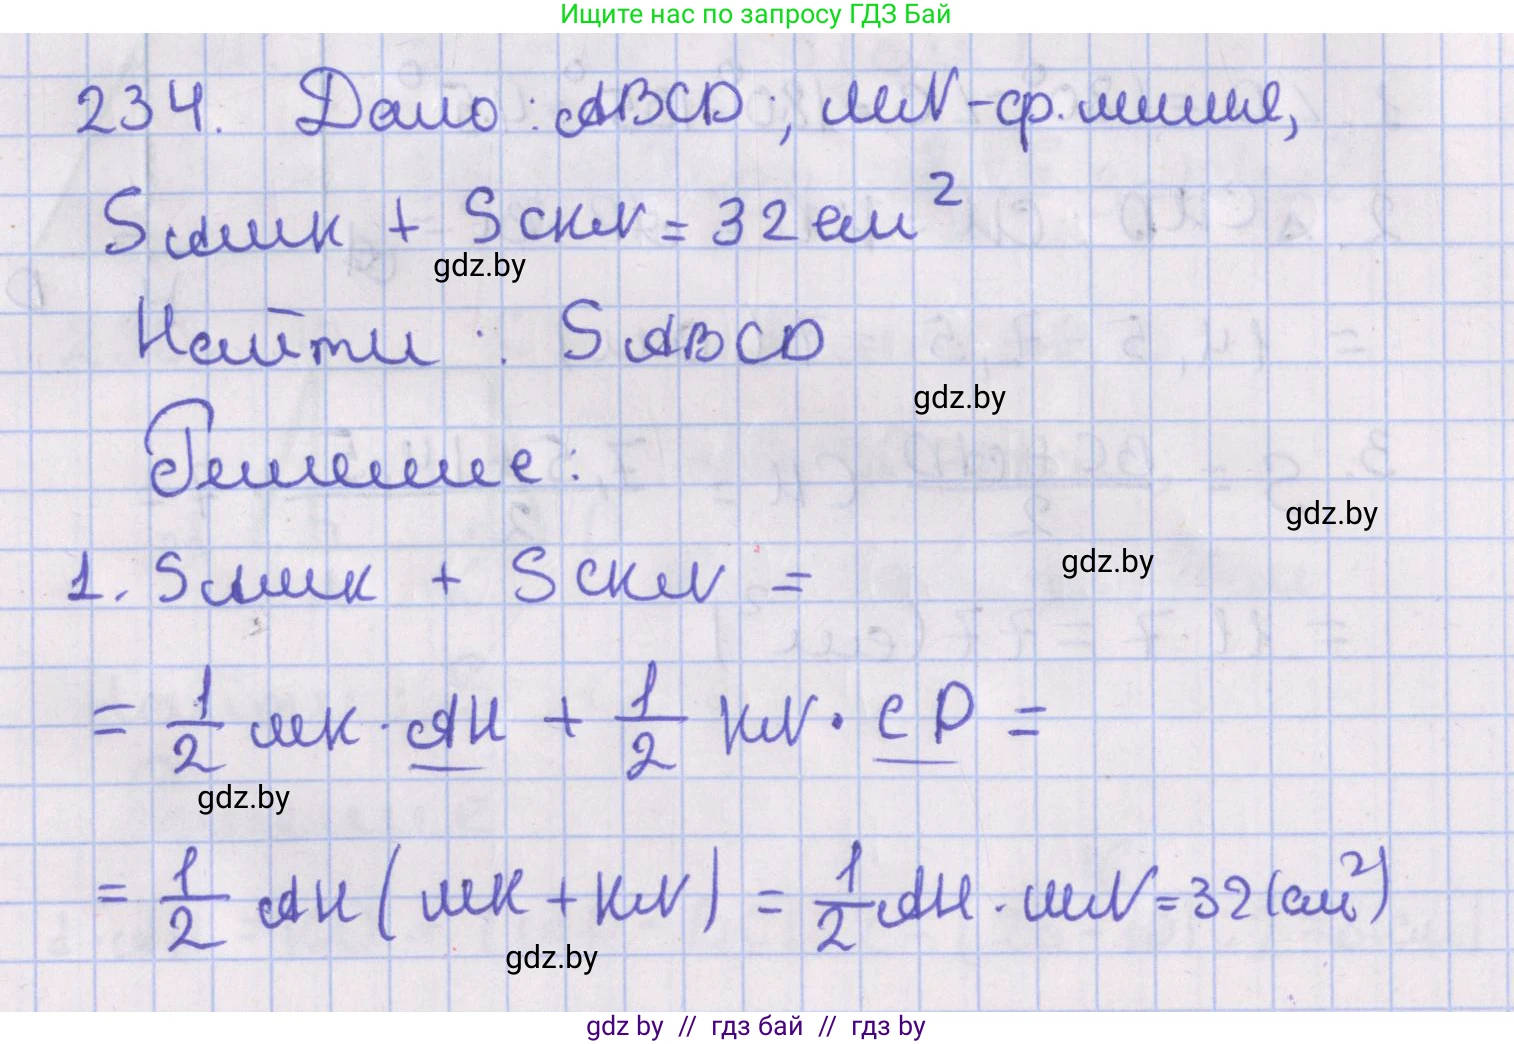 Ищите нас по запросу ГДЗ Бай
234. Дано: ABCD; MN - ср. линия,
S AMK + S CKN = 32 см²
gdz.by
Найти: S ABCD
gdz.by
Решение:
gdz.by
1. S AMK + S CKN =
gdz.by
= 1/2 MK · AH + 1/2 KN · CP =
gdz.by
= 1/2 AH (MK + KN) = 1/2 AH · MN = 32 (см²)
gdz.by
gdz by // гдз бай // гдз by